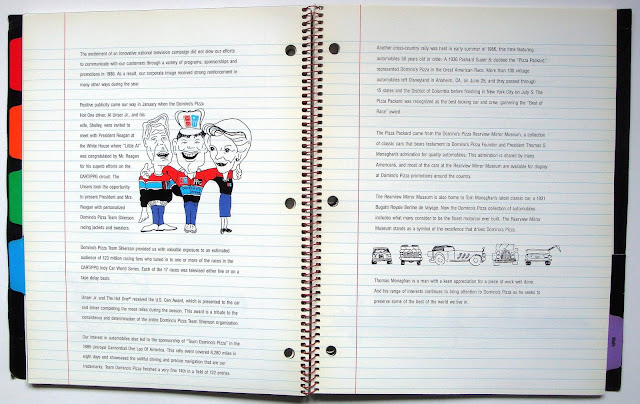 The excitement of an innovative national television campaign did not slow our efforts
to communicate with our customers through a variety of programs, sponsorships and
promotions in 1986. As a result, our corporate image received strong reinforcement in
many other ways during the year.
Positive publicity came our way in January when the Domino's Pizza
Hot One driver, Al Unser Jr., and his
wife, Shelley, were invited to
meet with President Reagan at
the White House where "Little Al"
was congratulated by Mr. Reagan
for his superb efforts on the
CART/PPG circuit. The
Unsers took the opportunity
to present President and Mrs.
Reagan with personalized
Domino's Pizza Team Shierson
racing jackets and sweaters.
Domino's Pizza Team Shierson provided us with valuable exposure to an estimated
audience of 123 million racing fans who tuned in to one or more of the races in the
CART/PPG Indy Car World Series. Each of the 17 races was televised either live or on a
tape delay basis.
Unser Jr. and The Hot One® received the U.S. Cam Award, which is presented to the car
and driver completing the most miles during the season. This award is a tribute to the
consistency and determination of the entire Domino's Pizza Team Shierson organization.
Our interest in automobiles also led to the sponsorship of "Team Domino's Pizza" in the
1986 Cannonball One Lap Of America. This rally event covered 8,280 miles in
eight days and showcased the skillful driving and precise navigation that are our
trademarks. Team Domino's Pizza finished a very fine 14th in a field of 102 entries.
Another cross-country rally was held in early summer of 1986, this time featuring
automobiles 50 years old or older. A 1936 Packard Super 8, dubbed the "Pizza Packard,"
represented Domino's Pizza in the Great American Race. More than 100 vintage
automobiles left Disneyland in Anaheim, CA, on June 25, and they passed through
15 states and the District of Columbia before finishing in New York City on July 5. The
Pizza Packard was recognized as the best looking car and crew, garnering the "Best of
Race" award.
The Pizza Packard came from the Domino's Pizza Rearview Mirror Museum, a collection
of classic cars that bears testament to Domino's Pizza Founder and President Thomas S.
Monaghan's admiration for quality automobiles. This admiration is shared by many
Americans, and most of the cars at the Rearview Mirror Museum are available for display
at Domino's Pizza promotions around the country.
The Rearview Mirror Museum is also home to Tom Monaghan's latest classic car, a 1931
Bugatti Royale Berline de Voyage. Now the Domino's Pizza collection of automobiles
includes what many consider to be the finest motorcar ever built. The Rearview Mirror
Museum stands as a symbol of the excellence that drives Domino's Pizza.
Thomas Monaghan is a man with a keen appreciation for a piece of work well done.
And his range of interests continues to bring attention to Domino's Pizza as he seeks to
preserve some of the best of the world we live in.